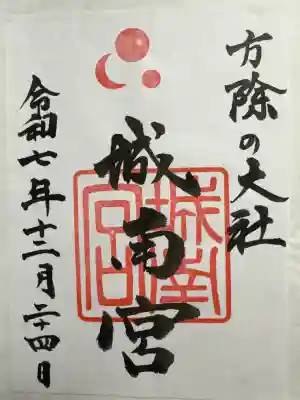 方除の大社
城南宮
令和七年十二月二十四日
城南宮印